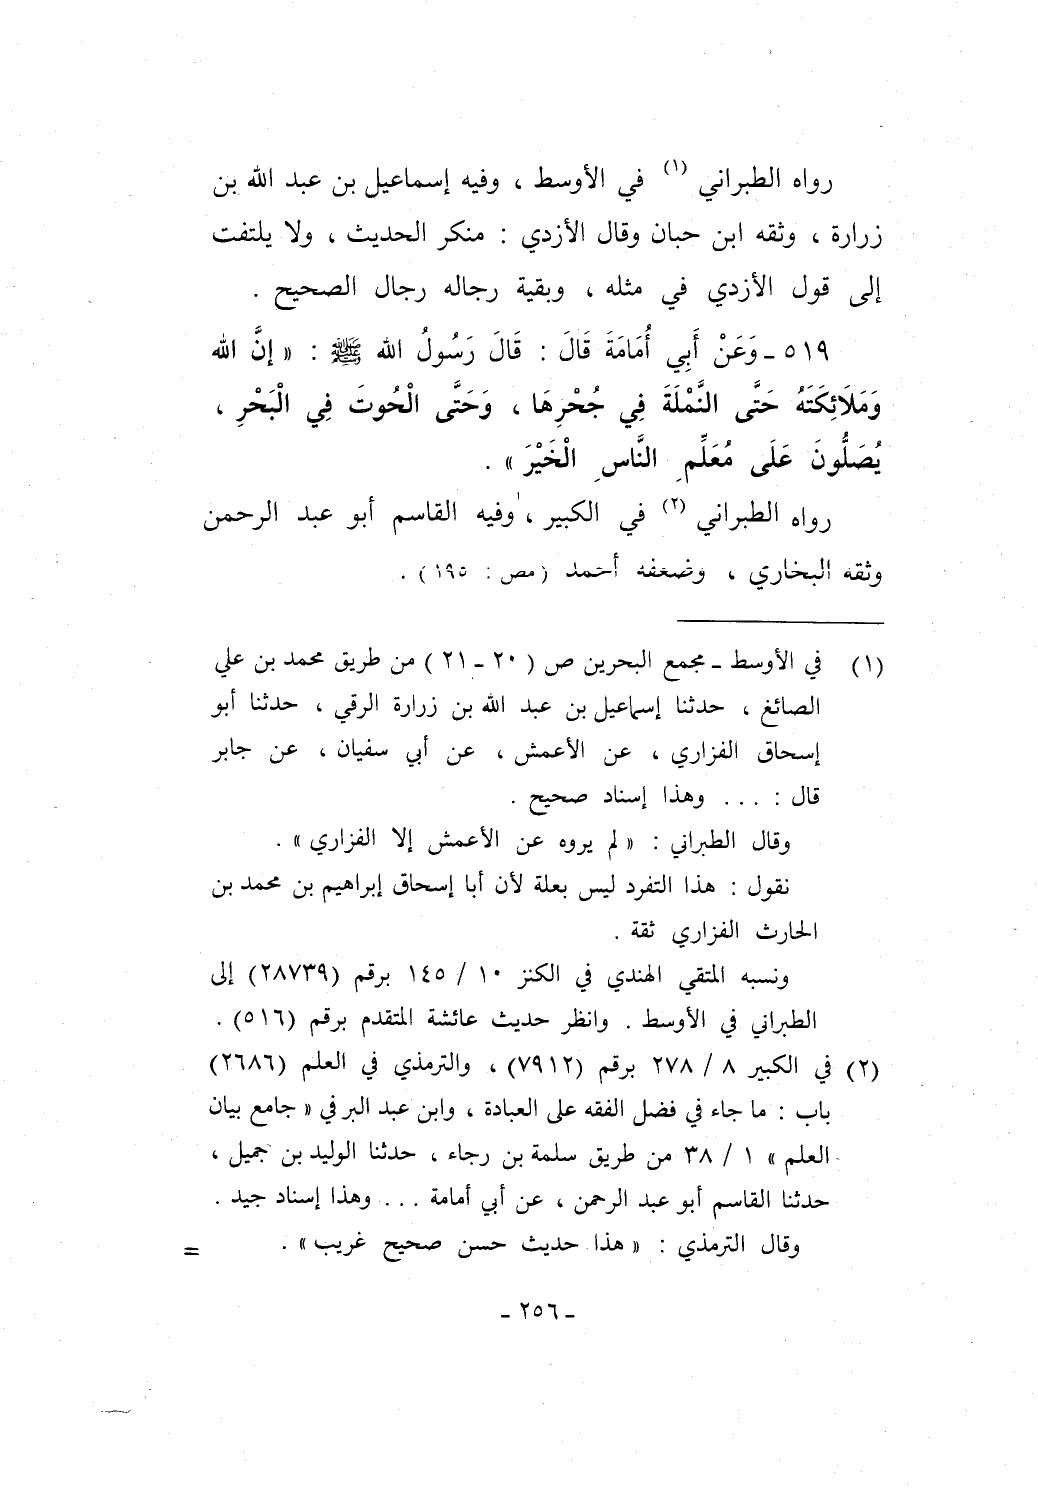 رواه الطبراني (١) في الأوسط ، وفيه إسماعيل بن عبد الله بن
زرارة ، وثقه ابن حبان وقال الأزدي : منكر الحديث ، ولا يلتفت
إلى قول الأزدي في مثله ، وبقية رجاله رجال الصحيح .
٥١٩ ـ وَعَنْ أَبِي أُمَامَةَ قَالَ : قَالَ رَسُولُ الله ﷺ : « إنَّ الله
وَمَلَائِكَتَهُ حَتَّى النَّمْلَةَ فِي جُحْرِهَا ، وَحَتَّى الْحُوتَ فِي الْبَحْرِ ،
يُصَلُّونَ عَلَى مُعَلِّمِ النَّاسِ الْخَيْرَ » .
رواه الطبراني (٢) في الكبير ، وفيه القاسم أبو عبد الرحمن
وثقه البخاري ، وضعفه أحمد ( مص : ١٩٥ ) .
(١) في الأوسط ـ مجمع البحرين ص ( ٢٠ ـ ٢١ ) من طريق محمد بن علي
الصائغ ، حدثنا إسماعيل بن عبد الله بن زرارة الرقي ، حدثنا أبو
إسحاق الفزاري ، عن الأعمش ، عن أبي سفيان ، عن جابر
قال : ... وهذا إسناد صحيح .
وقال الطبراني : « لم يروه عن الأعمش إلا الفزاري » .
نقول : هذا التفرد ليس بعلة لأن أبا إسحاق إبراهيم بن محمد بن
الحارث الفزاري ثقة .
ونسبه المتقي الهندي في الكنز ١٠ / ١٤٥ برقم (٢٨٧٣٩) إلى
الطبراني في الأوسط . وانظر حديث عائشة المتقدم برقم (٥١٦) .
(٢) في الكبير ٨ / ٢٧٨ برقم (٧٩١٢) ، والترمذي في العلم (٢٦٨٦)
باب : ما جاء في فضل الفقه على العبادة ، وابن عبد البر في « جامع بيان
العلم » ١ / ٣٨ من طريق سلمة بن رجاء ، حدثنا الوليد بن جميل ،
حدثنا القاسم أبو عبد الرحمن ، عن أبي أمامة ... وهذا إسناد جيد .
وقال الترمذي : « هذا حديث حسن صحيح غريب » . =
ـ ٢٥٦ ـ